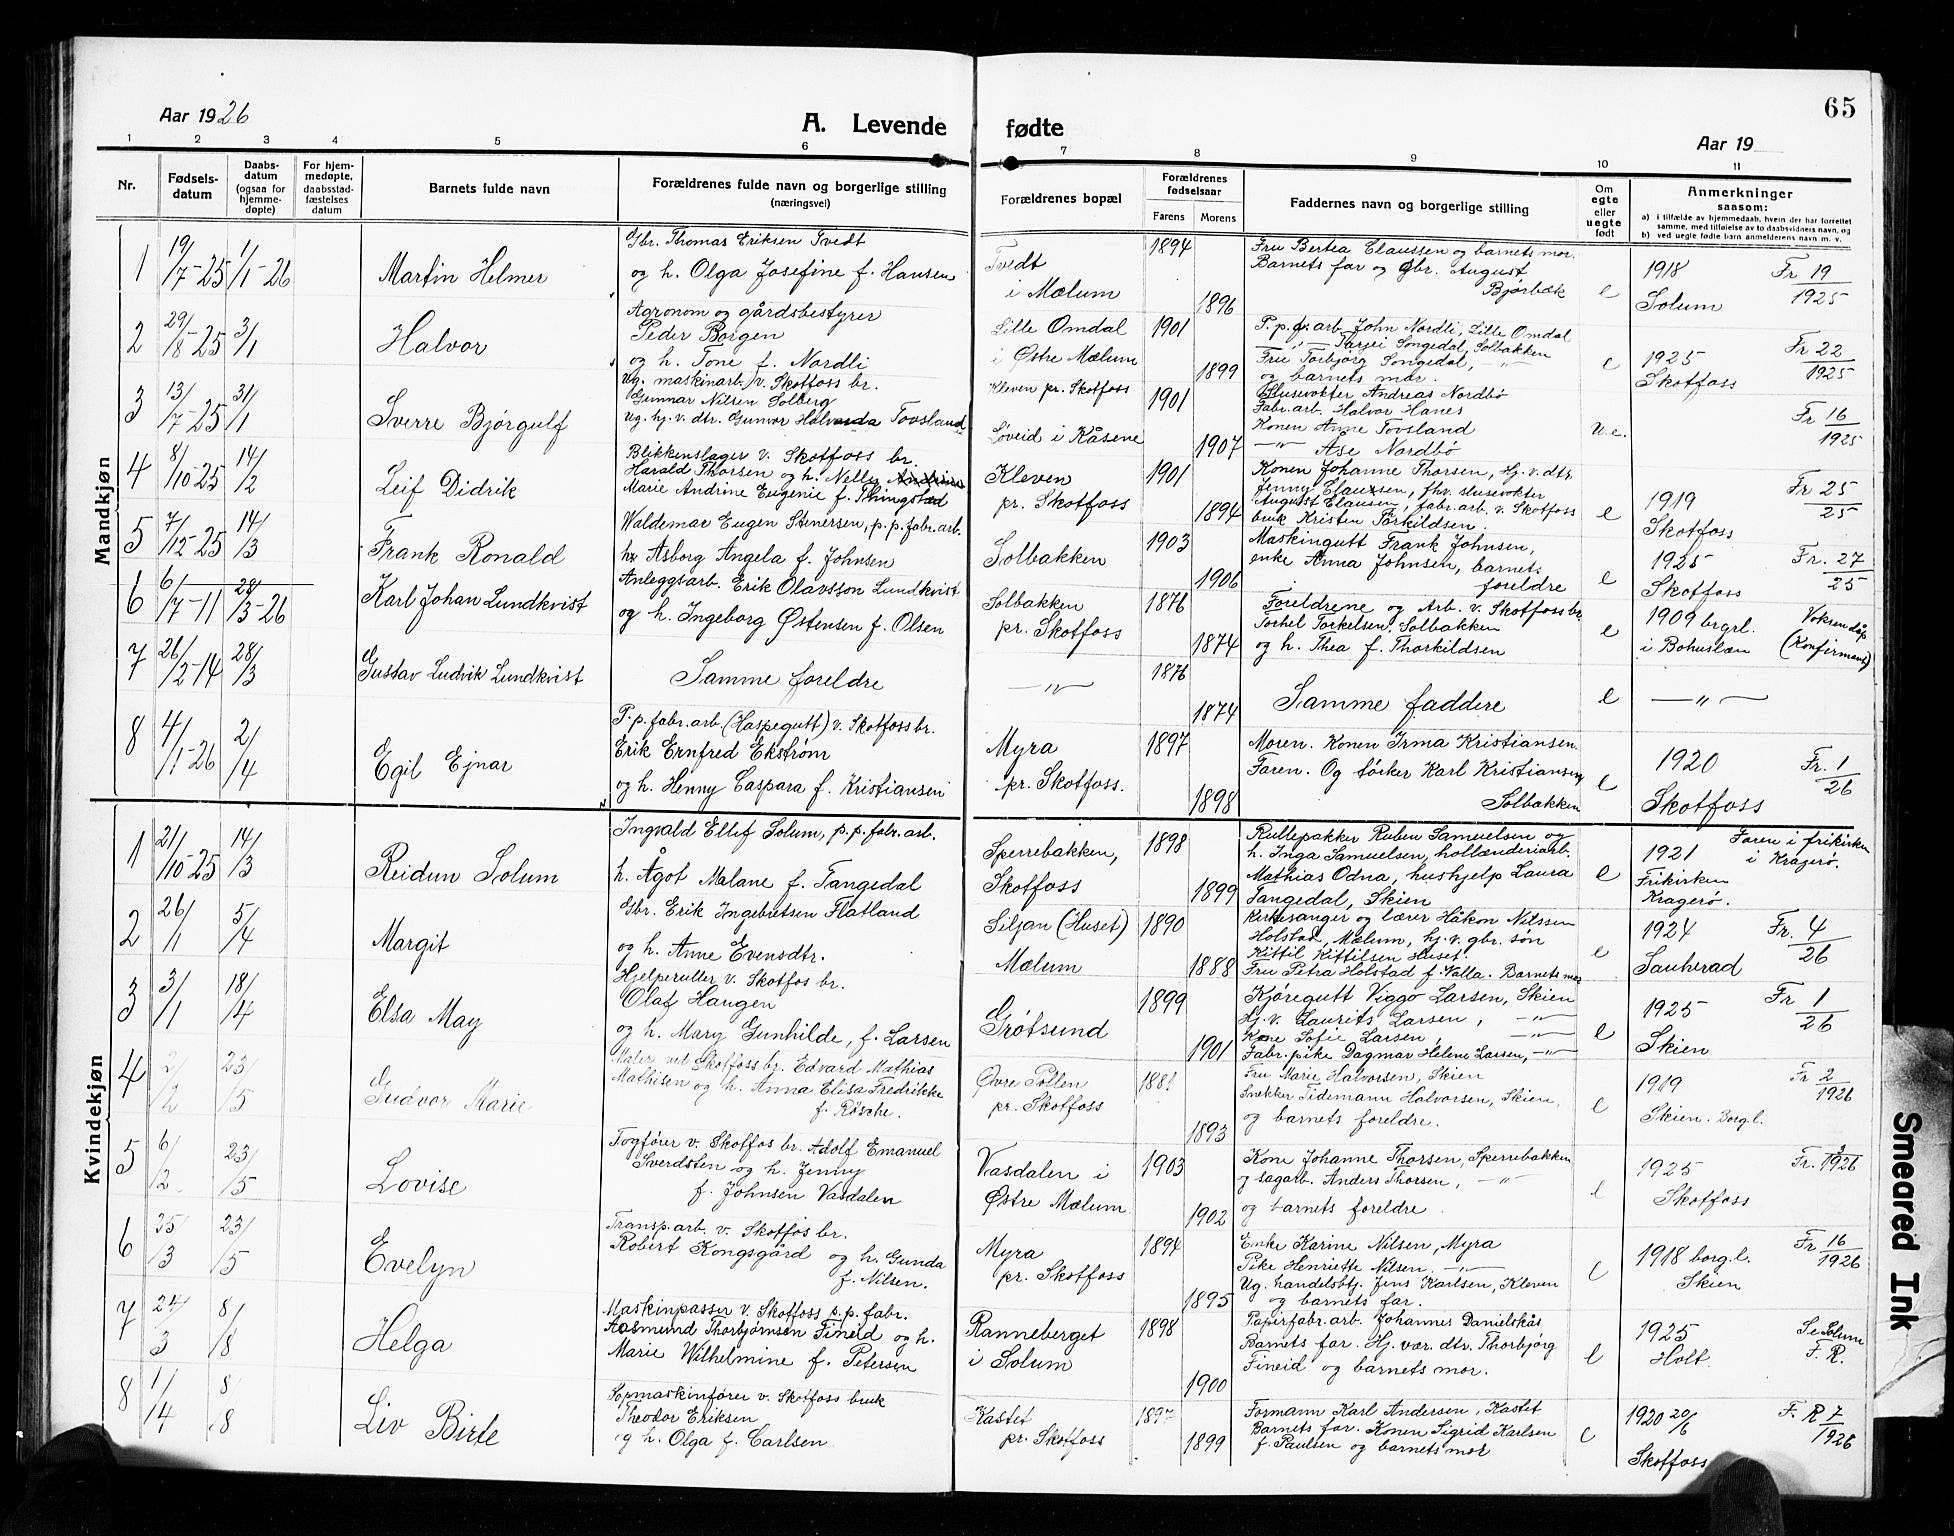 65
Aar 1926
A. Levende fødte
Aar 19
1 2 3 4 5 6 7 8 9 10 11
Nr.
Fødselsdatum
Daabsdatum (ogsaa for hjemmedøpte)
For hjemmedøpte, daabsstadfæstelses datum
Barnets fulde navn
Forældrenes fulde navn og borgerlige stilling (næringsvei)
Forældrenes bopæl
Forældrenes fødselsaar
Farens Morens
Faddernes navn og borgerlige stilling
Om egte eller uegte født
Anmerkninger saasom:
a) i tilfælde av hjemmedaab, hvem der har forrettet samme, med tilføielse av to daabsvidners navn, og
b) ved uegte fødte barn anmelderens navn m. v.
Mandkjøn
1 19/7-25 1/1-26 Martin Helmer
Gbr. Thomas Eriksen Tvedt
og h. Olga Josefine f. Hansen
Tvedt
i Mælum
1894
1896
Fru Bertea Claussen og barnets mor.
Barnets far og gbr. August
Bjørbæk
e
1918
Solum
Fr 19/1925
2 29/8-25 3/1 Halvor
Agronom og gårdsbestyrer
Peder Borgen
og h. Tone f. Nordli
Lille Omdal
i Østre Mælum
1901
1899
T. p. f. arb John Nordli, Lille Omdal
—"— Tarjei Songedal, Solbakken
Fru Torbjørg Songedal, —"—
og barnets mor.
e
1925
Skotfoss
Fr 22/1925
3 13/7-25 31/1 Sverre Bjørgulf
Ug. maskinarb. v. Skotfoss br.
Gunnar Nilsen Solberg
ug. hj. v. dtr. Gunvor Halvorda Tovsland
Kleven pr. Skotfoss
Løveid i Kåsene
1901
1907
Slusevokter Andreas Nordbø
Fabr. arb. Halvor Hanes
Konen Anne Tovsland
—"— Åse Nordbø
u.e.
Fr 16/1925
4 8/10-25 14/2 Leif Didrik
Blikkenslager v. Skotfoss br.
Harald Thorsen og h. Nelly
Marie Andrine Eugenie f. Thingstad
Kleven
pr. Skotfoss
1901
1894
Konen Johanne Thorsen, Hj. v. dtr.
Jenny Clausen, fhv. slusevokter
August Clausen, fabr. arb. v. Skotfoss
bruk Kristen Torkildsen.
e
1919
Skotfoss
Fr 25/25
5 7/12-25 14/3 Frank Ronald
Waldemar Eugen Stenersen, p.p. fabr. arb.
h. Asborg Angela f. Johnsen
Solbakken
1903
1906
Maskingutt Frank Johnsen,
enke Anna Johnsen, barnets
foreldre
e
1925
Skotfoss
Fr. 27/25
6 6/7-11 28/3-26 Karl Johan Lundkvist
Anleggsarb. Erik Olavsson Lundkvist
og h. Ingeborg Østensen f. Olsen
Solbakken
pr. Skotfoss
1876
1874
Foreldrene og Arb. v. Skotfoss br.
Torkel Torkelsen, Solbakken
og h. Thea f. Thorkildsen
e
1909 brgrl.
i Bohuslæn
Voksendåp
(Konfirmant)
7 26/2-14 28/3 Gustav Ludvik Lundkvist
Samme foreldre
—"—
1876
1874
Samme faddere
e
—"—
8 4/1-26 2/4 Egil Ejnar
T. p. fabr. arb (Haspegutt) v. Skotfoss br.
Erik Ernfred Ekstrøm
og h. Henny Caspara f. Kristiansen
Myra
pr. Skotfoss.
1897
1898
Moren. Konen Irma Kristiansen.
Faren. Og tørker Karl Kristiansen,
Solbakken
e
1920
Skotfoss
Fr. 1/26
Kvindekjøn
1 21/10-25 14/3 Reidun Solum
Ingvald Ellef Solum, p.p. fabr. arb.
h. Ågot Malane f. Tangedal
Sperrebakken,
Skotfoss
1898
1899
Rullepakker Ruben Samuelsen og
h. Inga Samuelsen, hollænderiarb.
Mathias Odna, hushjelp Laura
Tangedal, Skien
e
1921
Frikirken
Kragerø.
Faren i frikirken
i Kragerø.
2 26/1 5/4 Margit
Gbr. Erik Ingebretsen Flatland
og h. Anne Evensdtr.
Siljan (Huset)
Mælum
1890
1888
Kirkesanger og lærer Håkon Nilssen
Holstad, Mælum, hj. v. gbr. søn
Kittil Kittilsen Huset.
Fru Petra Holstad f. Valla. Barnets mor
e
1924
Sauherad
Fr. 4/26
3 3/1 18/4 Elsa May
Hjelperuller v. Skotfos br.
Olaf Haugen
og h. Mary Gunhilde, f. Larsen
Grøtsund
1899
1901
Kjøregutt Viggo Larsen, Skien
Hj. v. Laurits Larsen, —"—
Kone Sofie Larsen, —"—
Fabr. pike Dagmar Helene Larsen, —"—
e
1925
Skien
Fr 1/26
4 2/2 23/5 Gudvor Marie
Maler ved Skotfoss br. Edvard Mathias
Mathisen og h. Anna Elisa Fredrikke
f. Røsche.
Øvre Pollen
pr. Skotfoss
1881
1893
Fru Marie Halvorsen, Skien
Snekker Tidemann Halvorsen, Skien,
og barnets foreldre.
e
1919
Skien. Borg.l.
Fr 2/1926
5 6/2 23/5 Lovise
Togfører v. Skotfos br. Adolf Emanuel
Sverdsten og h. Jenny
f. Johnsen Vasdalen
Vasdalen i
Østre Mælum
1903
1902
Kone Johanne Thorsen, Sperrebakken
og sagarb. Anders Thorsen, —"—
og barnets foreldre
e
1925
Skotfoss
Fr. 3/1926
6 25/3 23/5 Evelyn
Transp. arb. v. Skotfos br.
Robert Kongsgård og h. Gunda
f. Nilsen.
Myra
pr. Skotfoss
1894
1895
Enke Karine Nilsen, Myra
Pike Henriette Nilsen. —"—
Ug. handelsbtj. Jens Karlsen, Kleven
og barnets far.
e
1918 borg.l.
Skien
Fr 16/1926
7 24/3 8/8 Helga
Maskinpasser v. Skotfoss p.p. fabr.
Aasmund Thorbjørnsen Fineid og h.
Marie Wilhelmine f. Petersen
Ranneberget
i Solum
1898
1900
Papirfabr. arb. Johannes Danielskås
Barnets far. Hj. vær. dtr. Thorbjørg
Fineid og barnets mor.
e
1925
Holt.
Se Solum
F. R.
8 1/4 8/8 Liv Birte
Sopmaskinfører v. Skotfoss bruk
Theodor Eriksen
og h. Olga f. Carlsen
Kastet
pr. Skotfoss
1897
1899
Formann Karl Andersen, Kastet
Barnets far. Konen Sigrid Karlsen
f. Paulsen og barnets mor
e
1920 20/6
Skotfoss
F. R 7/1926
Smeared Ink